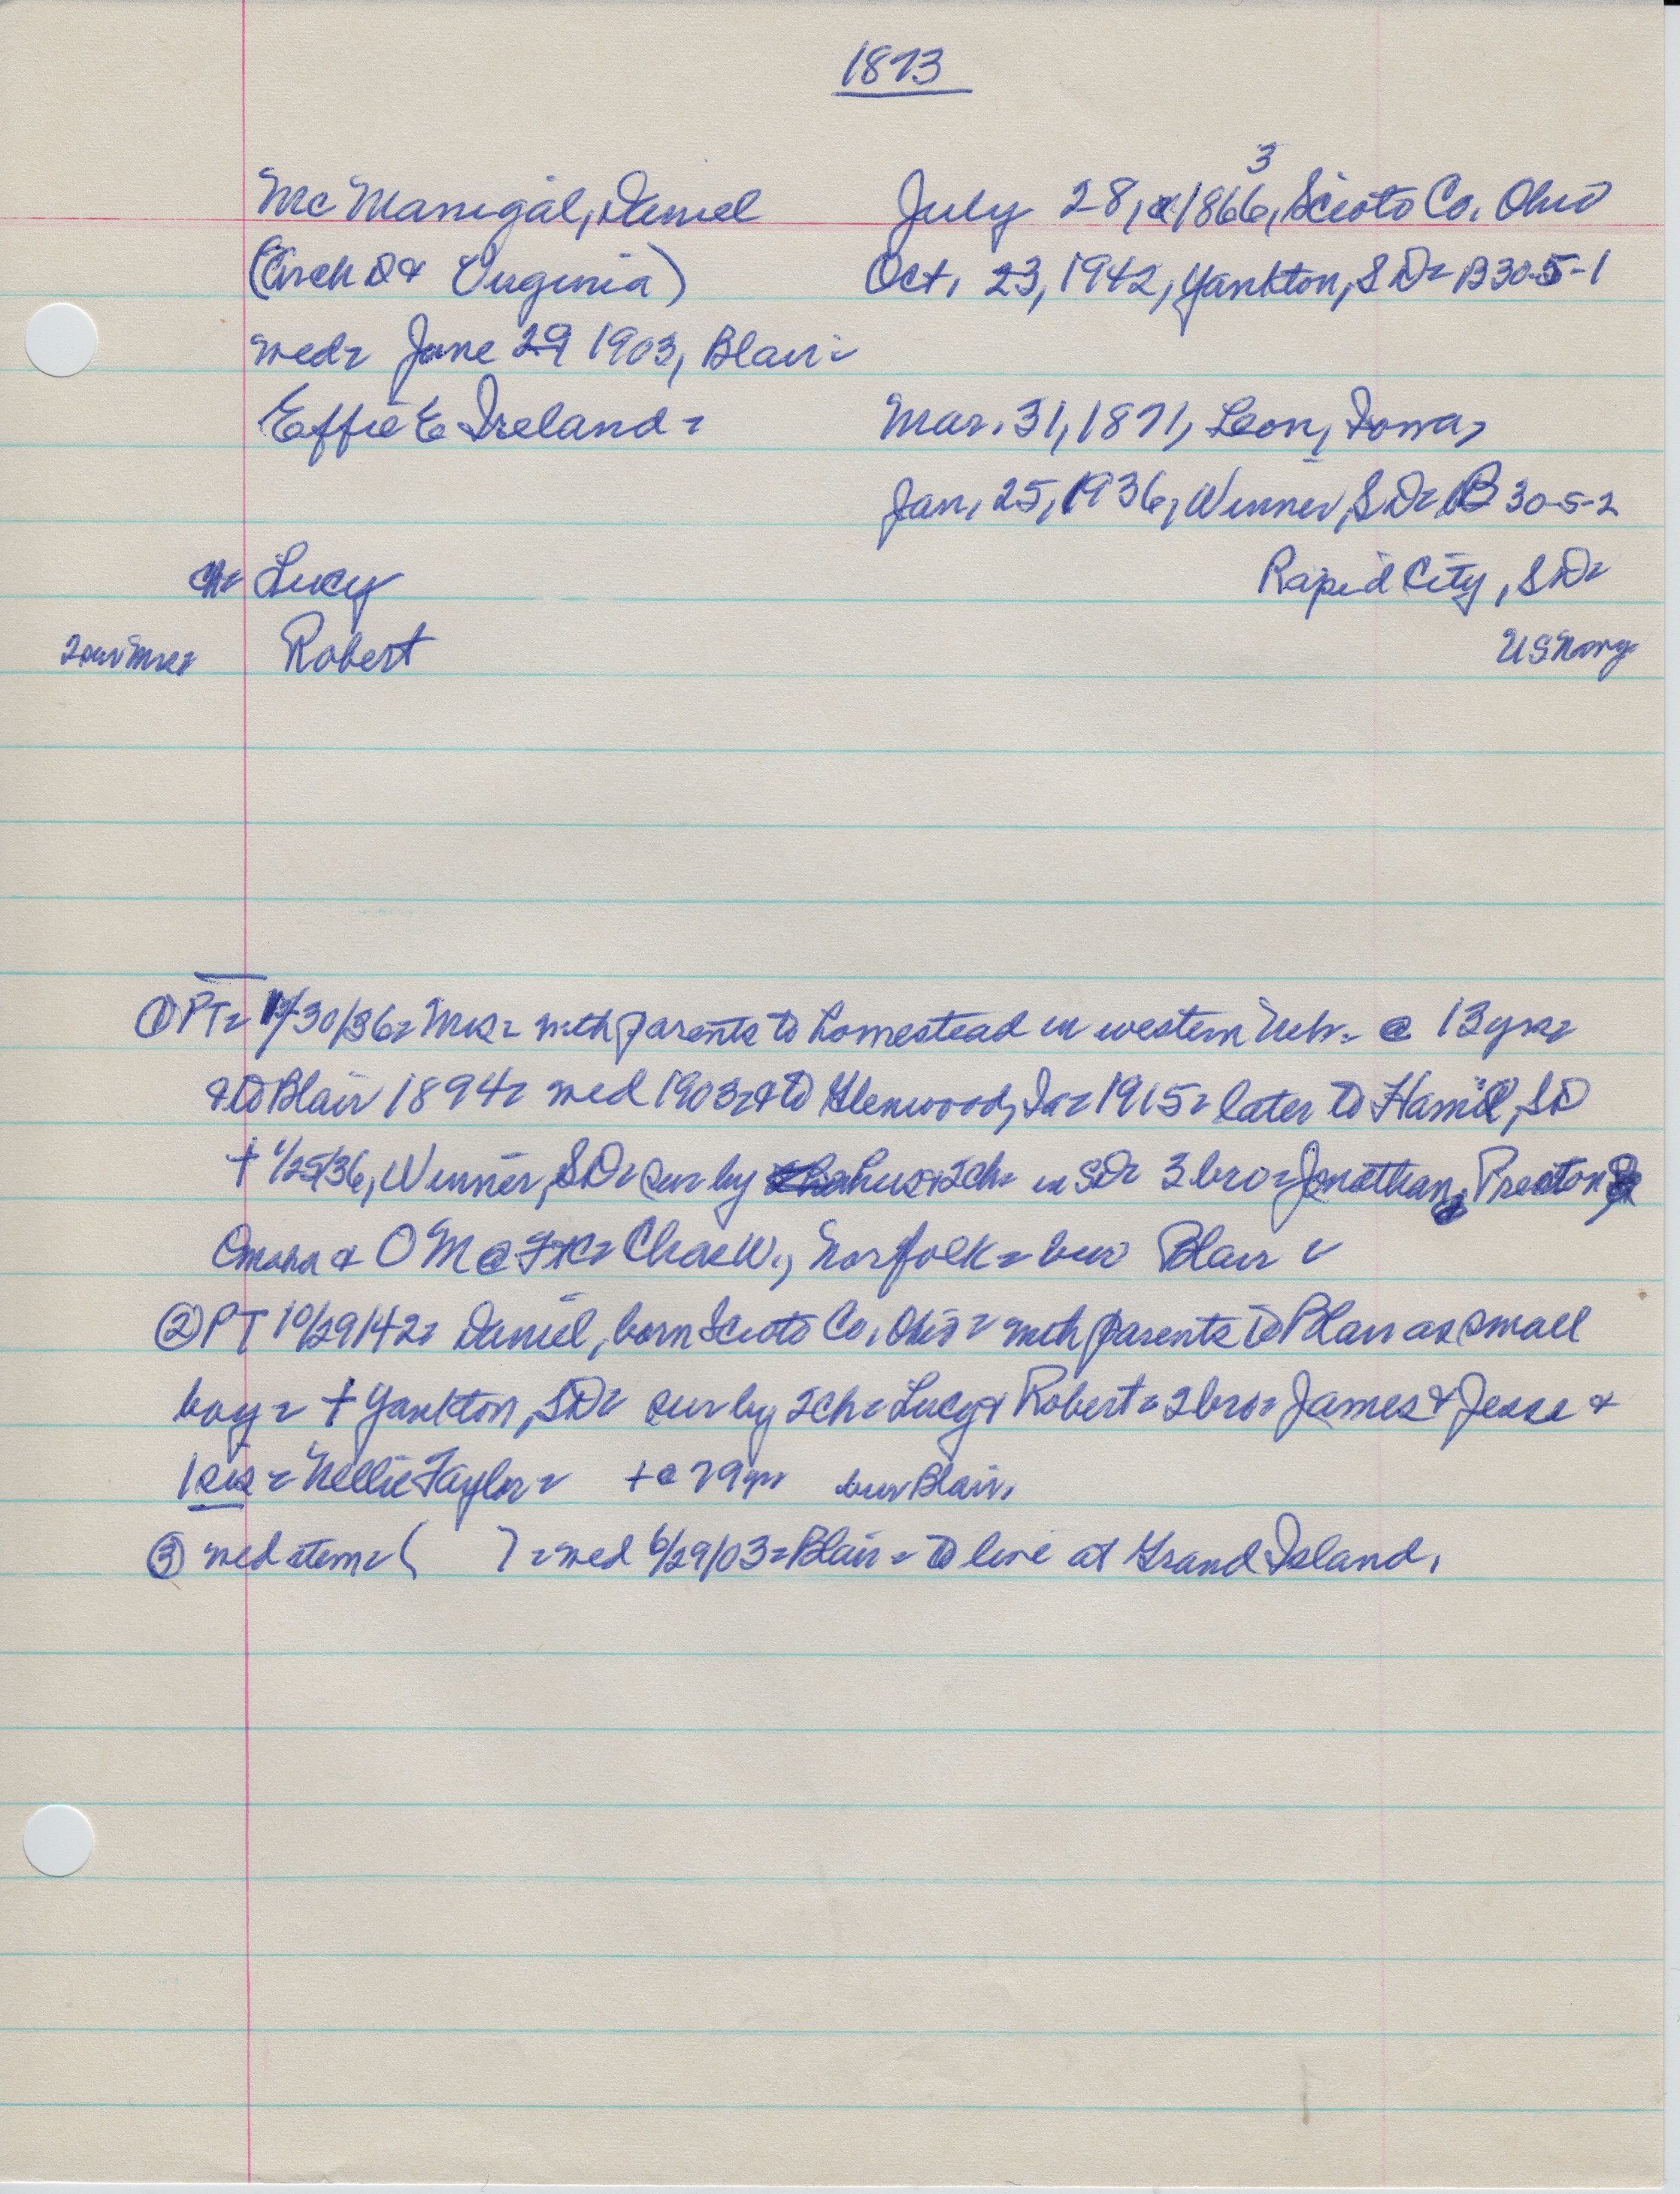 1873
Mc Manigal, Daniel July 28, 1866, Scioto Co. Ohio
3
(Arch D & Virginia) Oct. 23, 1942, Yankton, SD= B30-5-1
wed= June 29 1903, Blair=
Effie E Ireland= Mar. 31, 1871, Leon, Iowa,
Jan, 25, 1936, Winner, SD= B 30-5-2
ch= Lucy Rapid City, SD=
2 sur Mrs= Robert US Navy
① PT= 1/30/36= Mrs= with parents to homestead in western Neb.= @ 13 yrs=
& to Blair 1894= wed 1903= & to Glenwood, Ia= 1915= later to Hamill, SD
+ 1/25/36, Winner, SD= sur by hus & 2ch= in SD= 3 bro= Jonathan, Preston
Omaha & O M @ = Chas W., Norfolk= bur Blair
② PT 10/29/42= Daniel, born Scioto Co, Ohio= with parents to Blair as small
boy= + Yankton, SD= sur by 2ch= Lucy & Robert= 2 bro= James & Jesse &
1 sis= Nellie Taylor= + @ 79 yrs bur Blair.
③ wed item= ( )= wed 6/29/03= Blair= to live at Grand Island.